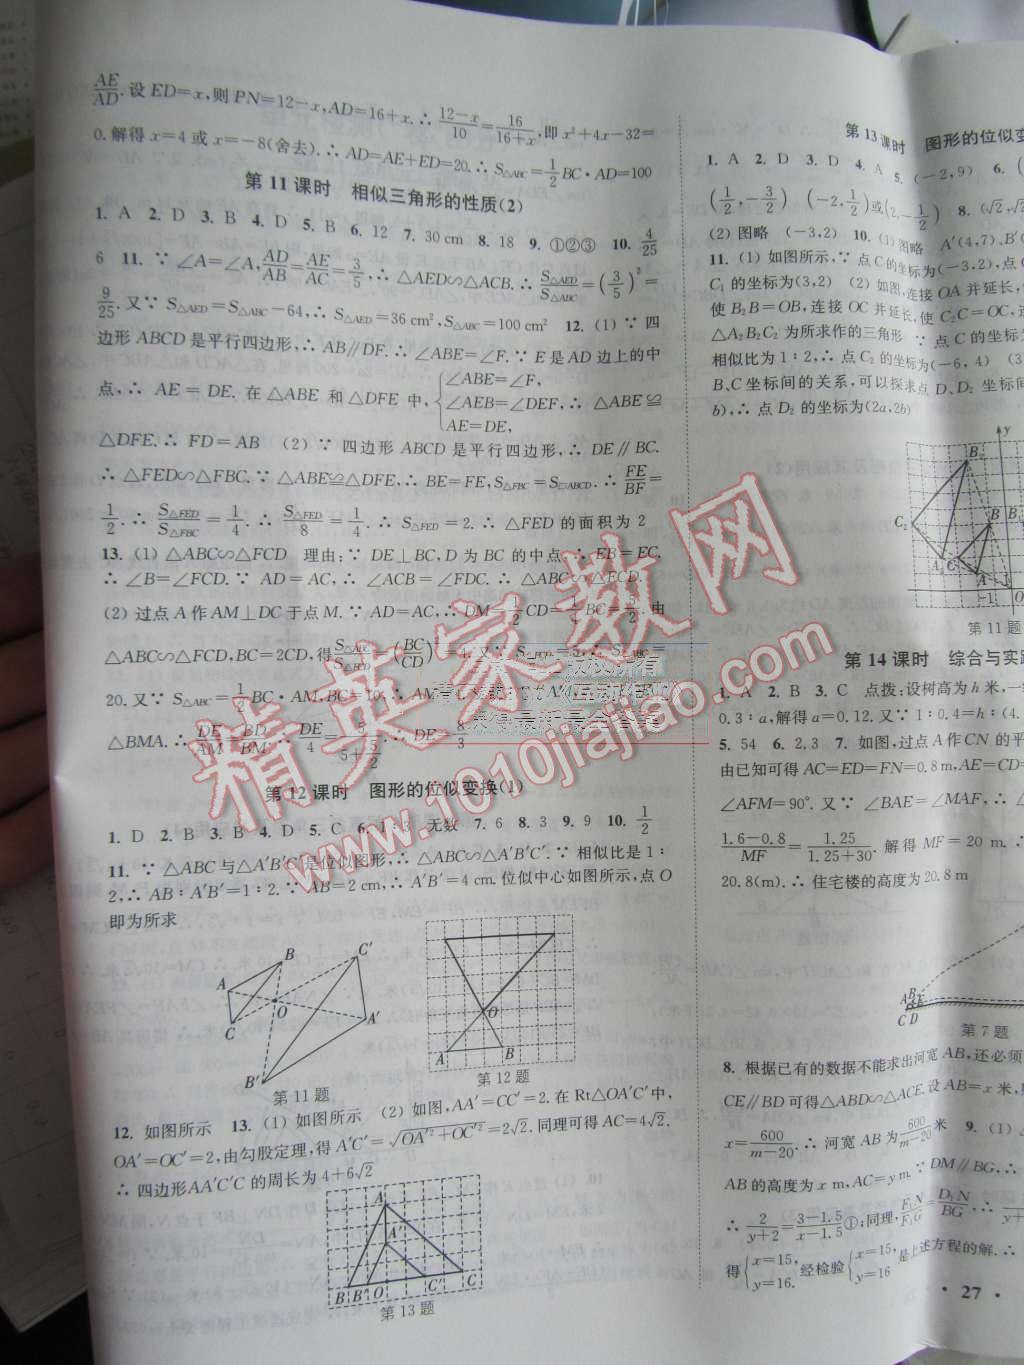 AE/AD. 设 ED=x,则 PN=12-x,AD=16+x.∴ (12-x)/10=16/(16+x),即 x²+4x-32=
0.解得 x=4 或 x=-8(舍去).∴ AD=AE+ED=20.∴ S△ABC=1/2 BC·AD=100
第 11 课时 相似三角形的性质(2)
1. A 2. D 3. B 4. D 5. B 6. 12 7. 30 cm 8. 18 9. ①②③ 10. 4/25
6 11. ∵ ∠A=∠A, AD/AB=AE/AC=3/5,∴ △AED∽△ACB.∴ S△AED/S△ABC=(3/5)²=
9/25. 又∵ S△AED=S△ABC-64,∴ S△AED=36 cm²,S△ABC=100 cm² 12. (1) ∵ 四
边形 ABCD 是平行四边形,∴ AB∥DF.∴ ∠ABE=∠F.∵ E是AD 边上的中
点,∴ AE=DE. 在 △ABE 和 △DFE 中, {∠ABE=∠F, ∠AEB=∠DEF, AE=DE, ∴ △ABE≌
△DFE.∴ FD=AB (2) ∵ 四边形 ABCD 是平行四边形,∴ DE∥BC.
∴ △FED∽△FBC.∵ △ABE≌△DFE,∴ BE=FE,S△FBC=S▱ABCD.∴ FE/BF=
1/2. ∴ S△FED/S△FBC=1/4. ∴ S△FED/8=1/4. ∴ S△FED=2.∴ △FED 的面积为 2
13. (1) △ABC∽△FCD 理由:∵ DE⊥BC,D 为 BC 的中点,∴ EB=EC.
∴ ∠B=∠FCD.∵ AD=AC,∴ ∠ACB=∠FDC.∴ △ABC∽△FCD.
(2) 过点 A 作 AM⊥DC 于点 M.∵ AD=AC,∴ DM=1/2 CD=1/4 BC=5/2. 由
△ABC∽△FCD,BC=2CD,得 S△ABC/S△FCD=(BC/CD)²=4. 又∵ S△FCD=5,∴
20. 又∵ S△ABC=1/2 BC·AM,BC=10,∴
△BMA.∴ DE/AM=BD/BM.∴ DE/4=5/(5+5/2).∴ DE=8/3
第 12 课时 图形的位似变换(1)
1. D 2. B 3. B 4. D 5. C 6. 1∶3 无数 7. 6 8. 3 9. 9 10. 1/2
11. ∵ △ABC 与△A′B′C′是位似图形,∴ △ABC∽△A′B′C′.∵ 相似比是 1∶
2,∴ AB∶A′B′=1∶2.∵ AB=2 cm,∴ A′B′=4 cm. 位似中心如图所示,点 O
即为所求
A B C O A′ B′ C′
第 11 题
O A B
第 12 题
12. 如图所示 13. (1) 如图所示 (2) 如图,AA′=CC′=2.在 Rt△OA′C′中,
OA′=OC′=2,由勾股定理,得 A′C′=√(OA′²+OC′²)=2√2.同理可得 AC=4√2.
∴ 四边形AA′C′C 的周长为 4+6√2
A A′ B B′ O C′ C
第 13 题
第 13 课时 图形的位似变
1. A 2. D 3. D 4. A 5. (-2,9) 6.
(1/2,-3/2) (-2,1/2)或(2,-1/2) 8. (√2,√2
(2) 图略 (-3,2) 10. (1) 图略 A′(4,7)
11. (1) 如图所示. ∵ 点 C的坐标为(-3,2),点
C₁ 的坐标为(3,2) (2) 如图,连接 OA 并延长,
使 B₂B=OB,连接 OC 并延长,使 C₂C=OC,
△A₂B₂C₂ 为所求作的三角形 ∵ 点 C的坐标
相似比为 1∶2,∴ 点 C₂ 的坐标为(-6,4) (3
B、C 坐标间的关系,可以探求点 D、D₂ 坐标间
b),∴ 点 D₂ 的坐标为(2a,2b)
y B₂ C₂ B A₂ C A -1 O
第 11 题
第 14 课时 综合与实践
1. A 2. B 3. C 点拨:设树高为 h 米,
0.3∶a,解得 a=0.12.又∵ 1∶0.4=h∶(4.
5. 54 6. 2.3 7. 如图,过点 A 作 CN 的平
由已知可得 AC=ED=FN=0.8 m,AE=CD=
∠AFM=90°. 又∵ ∠BAE=∠MAF,∴
(1.6-0.8)/MF=1.25/(1.25+30). 解得 MF=20 m.
20.8(m).∴ 住宅楼的高度为 20.8 m
A B E C D
第 7 题
8. 根据已有的数据不能求出河宽 AB,还必须
CE∥BD 可得△ABD∽△ACE.设 AB=x 米,
x=600/(m-20).∴ 河宽 AB 为 600/(m-20)米 9. (1)
AB 的高度为 x m,AC=y m.∵ DM∥BG,∴
∴ 2/(y+2)=(3-1.5)/(x-1.5)①;同理,F₁N/F₁G=D₁N/BG,∴
得{x=15, y=16. 经检验{x=15, y=16 是上述方程的解.∴
• 27 •
精英家教网
www.1010jiajiao.com